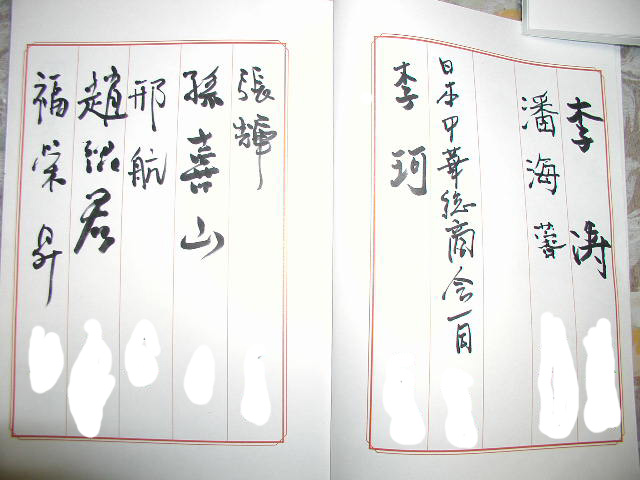 李涛
潘海蓉
日本中華総商会一同
李珂
張輝
孫喜山
邢航
趙銘君
福栄昇